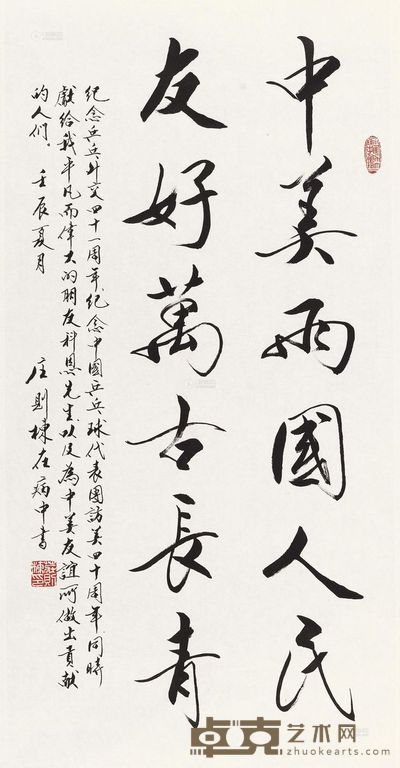 中美兩國人民
友好萬古長青
纪念乒乓外交四十一周年纪念中國乒乓球代表團訪美四十周年同時
獻给我平凡而偉大的朋友科恩先生以及為中美友誼所做出貢献
的人们。 壬辰夏月
庄則棟在病中書
卓克艺术网
zhuokearts.com